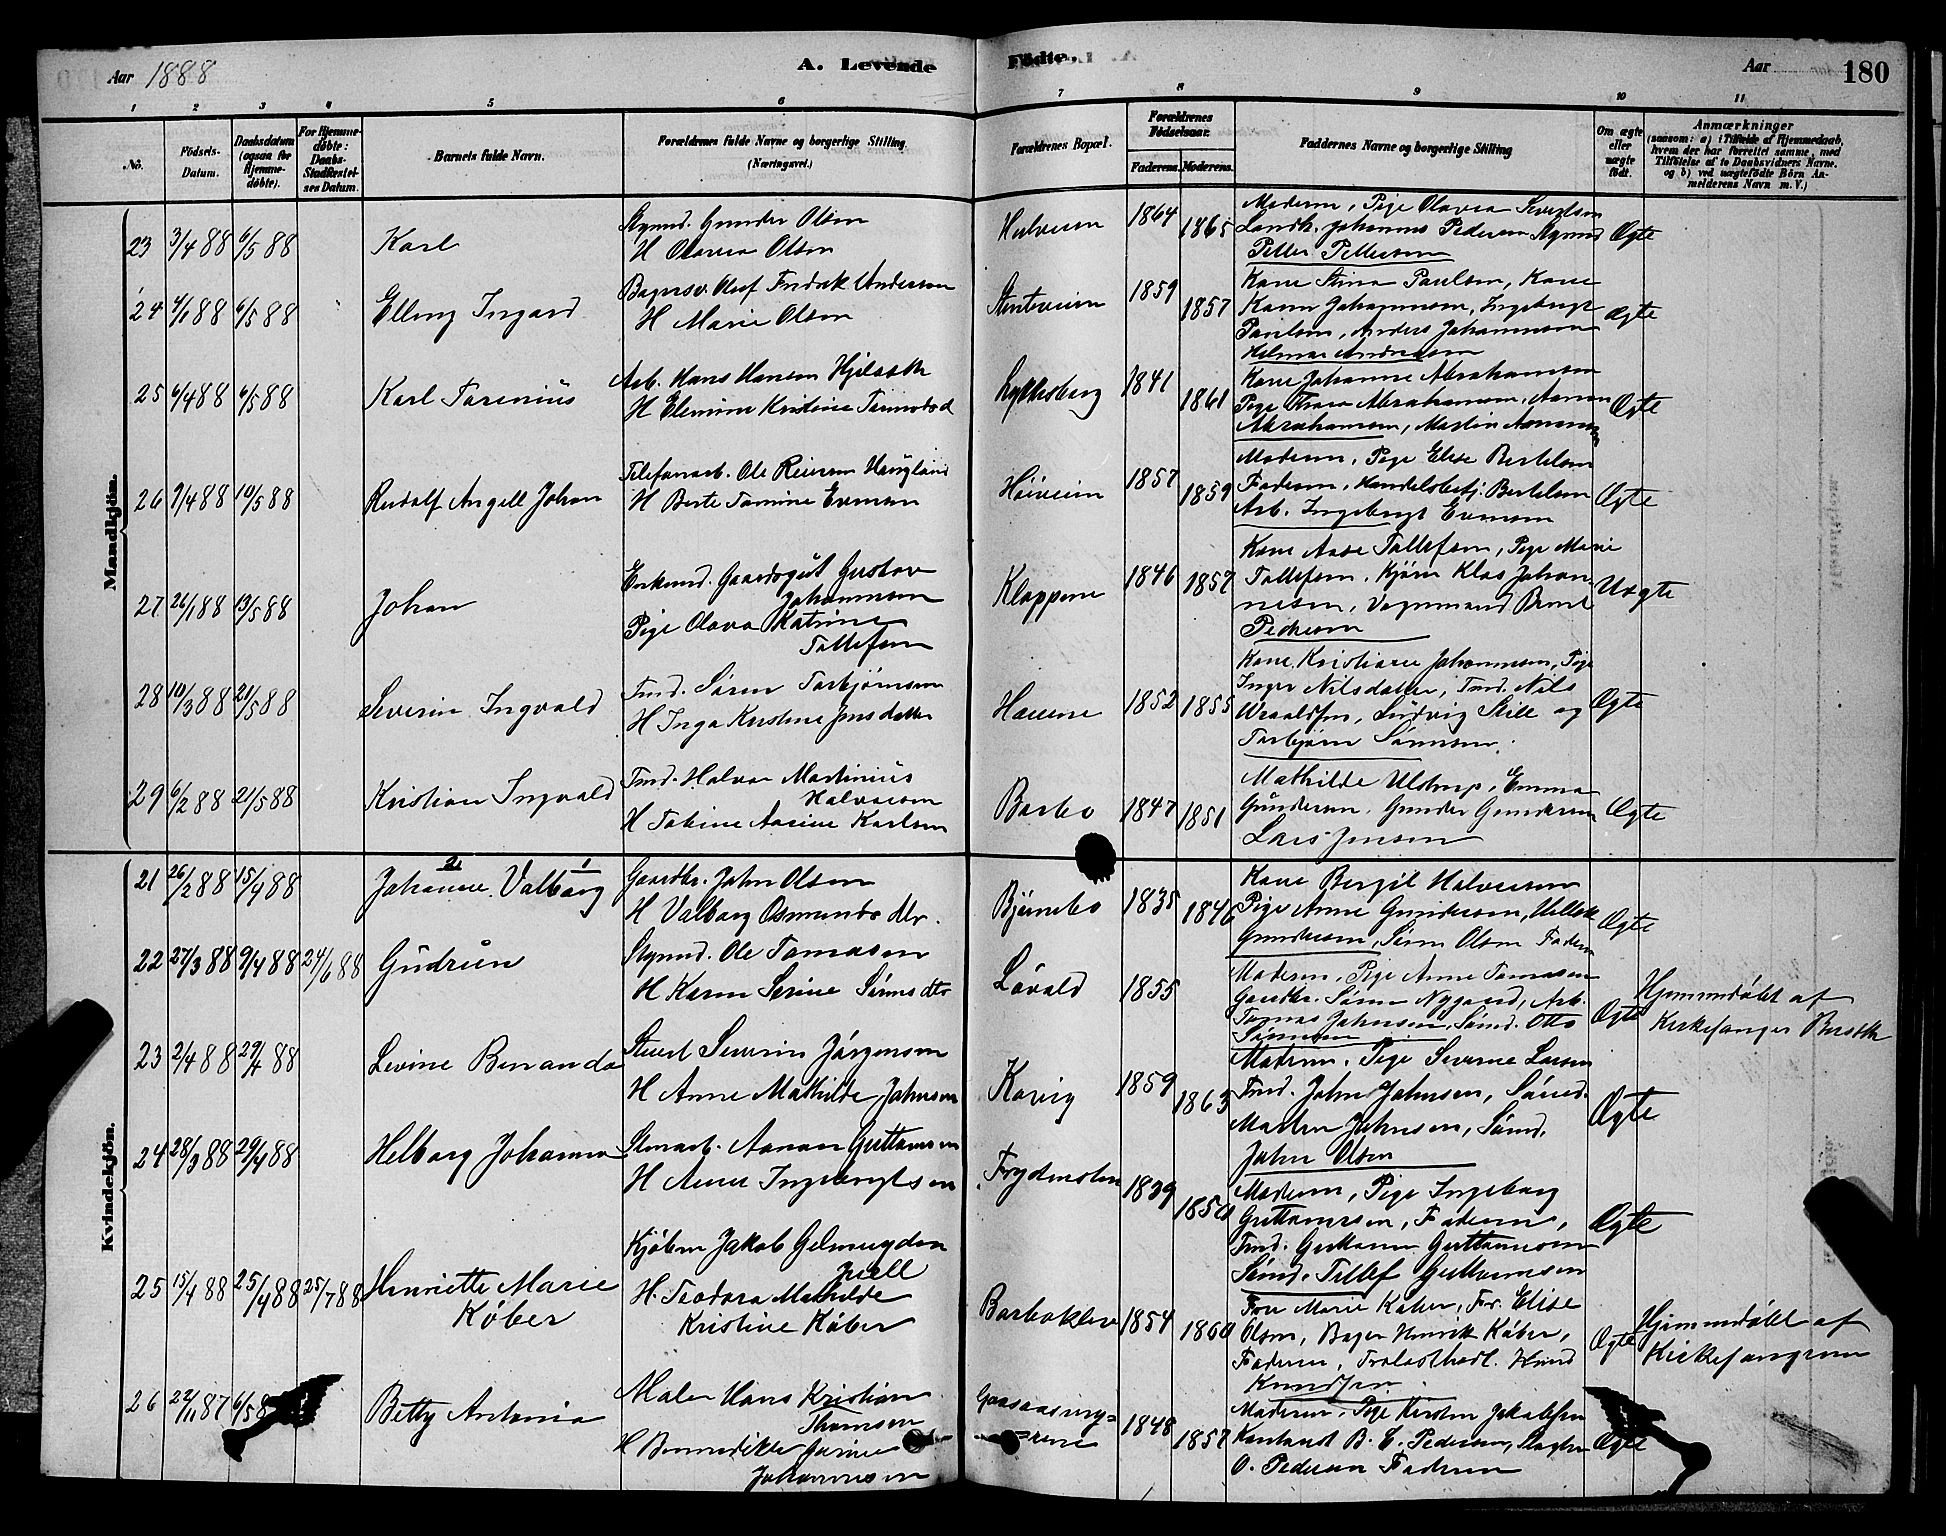 Aar 1888
A. Levende
Fødte.
Aar
180
1 2 3 4 5 6 7 8 9 10 11
No.
Fødsels-
Datum.
Daabsdatum
(ogsaa for
Hjemme-
døbte).
For Hjemme-
døbte:
Daabs-
Stadfæstel-
ses Datum.
Barnets fulde Navn.
Forældrenes fulde Navne og borgerlige Stilling
(Næringsvei.)
Forældrenes Bopæl.
Forældrenes
Fødselsaar.
Faderens. Moderens.
Faddernes Navne og borgerlige Stilling
Om ægte
eller
uægte
født.
Anmærkninger
(saasom: a) i Tilfælde af Hjemmedaab,
hvem der har forrettet samme, med
Tilføielse af to Daabsvidners Navne,
og b) ved uægtefødte Børn An-
melderens Navn m. V.)
Mandkjön.
23 3/4 88 6/5 88 Karl
Gunder Olsen
H Olavia Olsen
1864 1865
Moderen, Pige Olavia
Johannes Pedersen
Ægte
24 6/5 88 Elling Ingard
Fredrik Andersen
H Marie Olsen
1859 1857
Kone Stina Paulsen, Kone
Karen Johannesen, Ingebregt
Paulsen, Anders Johannesen
Helmar Andreasen
Ægte
25 6/4 88 6/5 88 Karl Tarenius
Arb. Hans Hansen
Kristine
Lykkesberg 1841 1861
Kone Johanne Abrahamsen
Pige Abrahamsen, Aanon
Abrahamsen, Martin
Ægte
26 7/4 88 10/5 88 Rudolf Angell Johan
Telefonarb. Ole Reiersen Haugland
H Berte Tomine Evensen
Høiveien 1857 1859
Moderen, Pige Elise Bertelsen
Faderen, Handelsbetj. Bertelsen
Arb. Ingebregt Evensen
Ægte
27 26/1 88 13/5 88 Johan
Enkemd. Gaardsgut Gustav
Johannesen
Pige Olava Katrine
Tallefsen
Kloppene 1846 1857
Kone Aase Tallefsen, Pige Marie
Tallefsen, Klas Johan-
nesen, Vognmand Bernt
Pedersen
Uægte
28 10/3 88 21/5 88 Severin Ingvald
Tmd. Søren Torbjørnsen
H Inga Kristine Jensdatter
Havene 1852 1855
Kone Kristiane Johannesen, Pige
Inger Nilsdatter, Tmd. Nils
Ludvig Stille og
Torbjørn Sørensen
Ægte
29 6/2 88 21/5 88 Kristian Ingvald
Tmd. Halvor Martinius
Halvorsen
H Tobine Aasine Karlsen
Barbo 1847 1851
Mathilde Ulstrup, Emma
Gundersen, Gunder Gundersen
Lars Jensen
Ægte
Kvindekjön.
21 26/2 88 15/4 88 Johanne Valborg
2 1
Gaardbr. John Olsen
H Valborg Osmundsdtr.
Bjørnebo 1835 1846
Kone Bergit Halvorsen
Pige Anne Gundersen,
Gundersen, Søren Olsen Faderen
Ægte
22 27/3 88 9/4 88 24/6 88 Gudrun
Ole Tomasen
H Karen Serine Sørensdtr
Løvold 1855
Moderen, Pige Anne Tomasen
Gaardbr. Søren Nygaard, Arb.
Tomas Johnsen, Sømd. Otto
Sørensen
Ægte
Hjemmedøbt af
Kirkesanger
23 2/4 88 29/4 88 Levine Benanda
Stuert Severin Jørgensen
H Anne Mathilde Johnsen
Kovig 1859 1863
Moderen, Pige Severine Larsen
Tmd. John Johnsen, Sømd.
Martin Johnsen, Sømd.
John Olsen
Ægte
24 28/3 88 29/4 88 Helborg Johanna
Stenarb. Aanon Guttormsen
H Anne Ingebregtsen
Frydensten 1839 1850
Moderen, Pige Ingeborg
Guttormsen, Faderen,
Tmd. Guttorm Guttormsen
Sømd. Tellef Guttormsen
Ægte
25 15/1 88 25/4 88 25/7 88 Henriette Marie
Køber
Kjøbm Jakob Gelmuyden
Juell
H. Teodora Mathilde
Kristine Køber
Barbokleven 1854 1860
Fru Marie Køber, Fr. Elise
Olsen, Bager Henrik Køber,
Faderen, Trælasthdl.
Knudsen
Ægte
Hjemmedøbt af
Kirkesangeren
26 22/11 87 6/5 8 Betty Antonia
Maler Hans Kristian
Thomsen
H Bennedikte Jørine
Johannesen
1848 1857
Moderen, Pige Kirsten Jakobsen
B. C. Pedersen,
O. Pedersen Faderen
Ægte